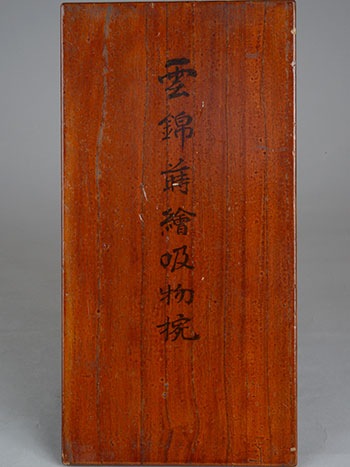 雲錦蒔繪吸物椀